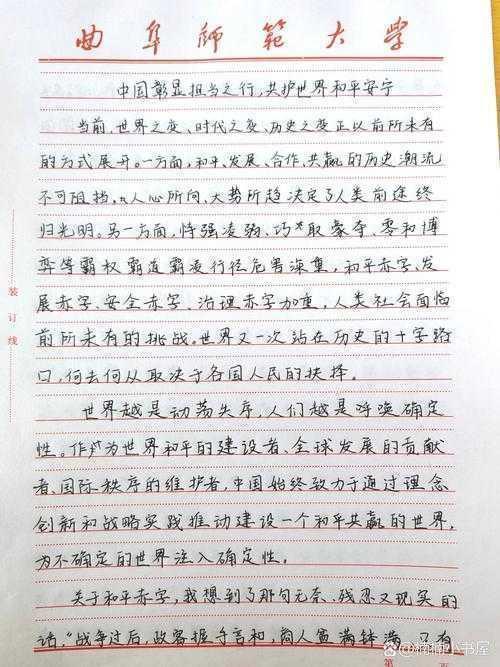 曲阜师范大学
中国彰显担当之行,共护世界和平安宁
当前,世界之变、时代之变、历史之变正以前所未有
的方式展开。一方面,和平、发展、合作、共赢的历史潮流
不可阻挡,人心所向、大势所趋决定了人类前途终
归光明。另一方面,恃强凌弱、巧取豪夺、零和博
弈等霸权霸道霸凌行径危害深重,和平赤字、发
展赤字、安全赤字、治理赤字加重,人类社会面临
前所未有的挑战。世界又一次站在历史的十字路
口,何去何从取决于各国人民的抉择。
世界越是动荡失序,人们越是呼唤确定
性。作为世界和平的建设者、全球发展的贡献
者、国际秩序的维护者,中国始终致力于通过理念
创新和战略实践推动建设一个和平共赢的世界,
为不确定的世界注入确定性。
关于和平赤字,我想到了那句无奈、残忍又现实的
话,“战争过后,政客握手言和,商人富满钵满,只有
装订线
第
页
小书屋